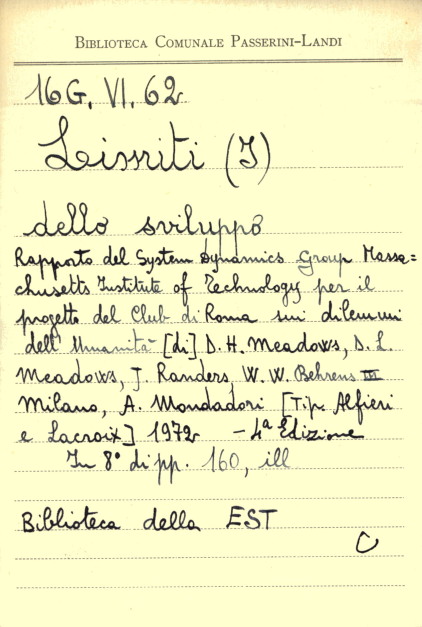 BIBLIOTECA COMUNALE PASSERINI-LANDI
16G. VI. 62
Limiti (I)
dello sviluppo
Rapporto del System Dynamics Group Massa=
chusetts Institute of Technology per il
progetto del Club di Roma sui dilemmi
dell'Umanità [di] D. H. Meadows, D. L.
Meadows, J. Randers, W. W. Behrens III
Milano, A. Mondadori [Tip. Alfieri
e Lacroix] 1972 - 4ª Edizione
In 8° di pp. 160, ill
Biblioteca della EST
C